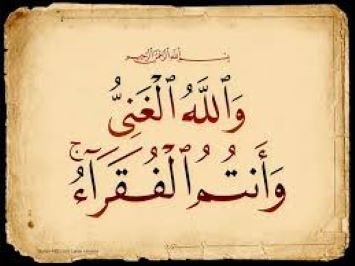 بسم الله الرحمن الرحيم
وَٱللَّهُ ٱلْغَنِىُّ
وَأَنتُمُ ٱلْفُقَرَآءُ ۚ